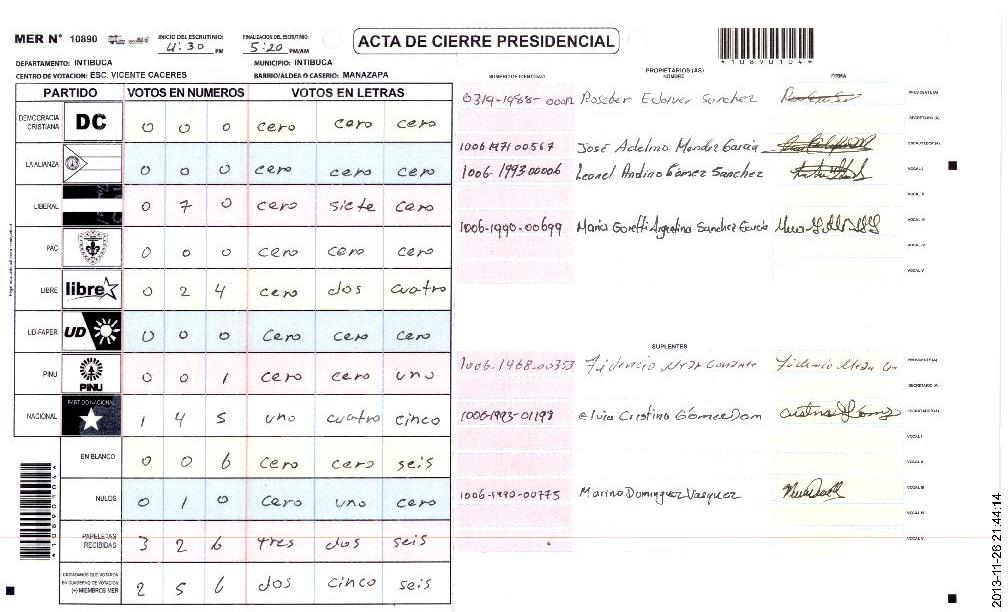 MER N° 10890
INICIO DEL ESCRUTINIO: 4:30 PM
FINALIZACION DEL ESCRUTINIO: 5:20 PM/AM
ACTA DE CIERRE PRESIDENCIAL
*10890104*
DEPARTAMENTO: INTIBUCA
MUNICIPIO: INTIBUCA
CENTRO DE VOTACION: ESC. VICENTE CACERES
BARRIO/ALDEA O CASERIO: MANAZAPA
PARTIDO VOTOS EN NUMEROS VOTOS EN LETRAS
DEMOCRACIA CRISTIANA DC 0 0 0 cero cero cero
LA ALIANZA 0 0 0 cero cero cero
LIBERAL 0 7 0 cero siete cero
PAC 0 0 0 cero cero cero
LIBRE libre 0 2 4 cero dos cuatro
UD-FAPER UD 0 0 0 cero cero cero
PINU PINU 0 0 1 cero cero uno
NACIONAL PARTIDO NACIONAL 1 4 5 uno cuatro cinco
EN BLANCO 0 0 6 cero cero seis
NULOS 0 1 0 cero uno cero
PAPELETAS RECIBIDAS 3 2 6 tres dos seis
CIUDADANOS QUE VOTARON EN CUADERNO DE VOTACION (+) MIEMBROS MER 2 5 6 dos cinco seis
*10890104*
PROPIETARIOS (AS)
NUMERO DE IDENTIDAD NOMBRE FIRMA
0319-1988- Rosober Edolver Sanchez PRESIDENTE (A)
SECRETARIO (A)
1006 1971 00567 José Adelmo Mendez Garcia ESCRUTADOR (A)
1006-1993 00006 Leonel Andino Gomez Sanchez VOCAL I
VOCAL II
1006-1990-00699 Maria Goretti Argentina Sanchez Garcia VOCAL III
VOCAL IV
VOCAL V
SUPLENTES
1006-1968-00353 Fidencio Meza PRESIDENTE (A)
SECRETARIO (A)
1006-1993-01198 Elvia Cristina Gómez Dom ESCRUTADOR (A)
VOCAL I
VOCAL II
1006-1990-00775 Marino Dominguez Vasquez VOCAL III
VOCAL IV
VOCAL V
2013-11-26 21:44:14